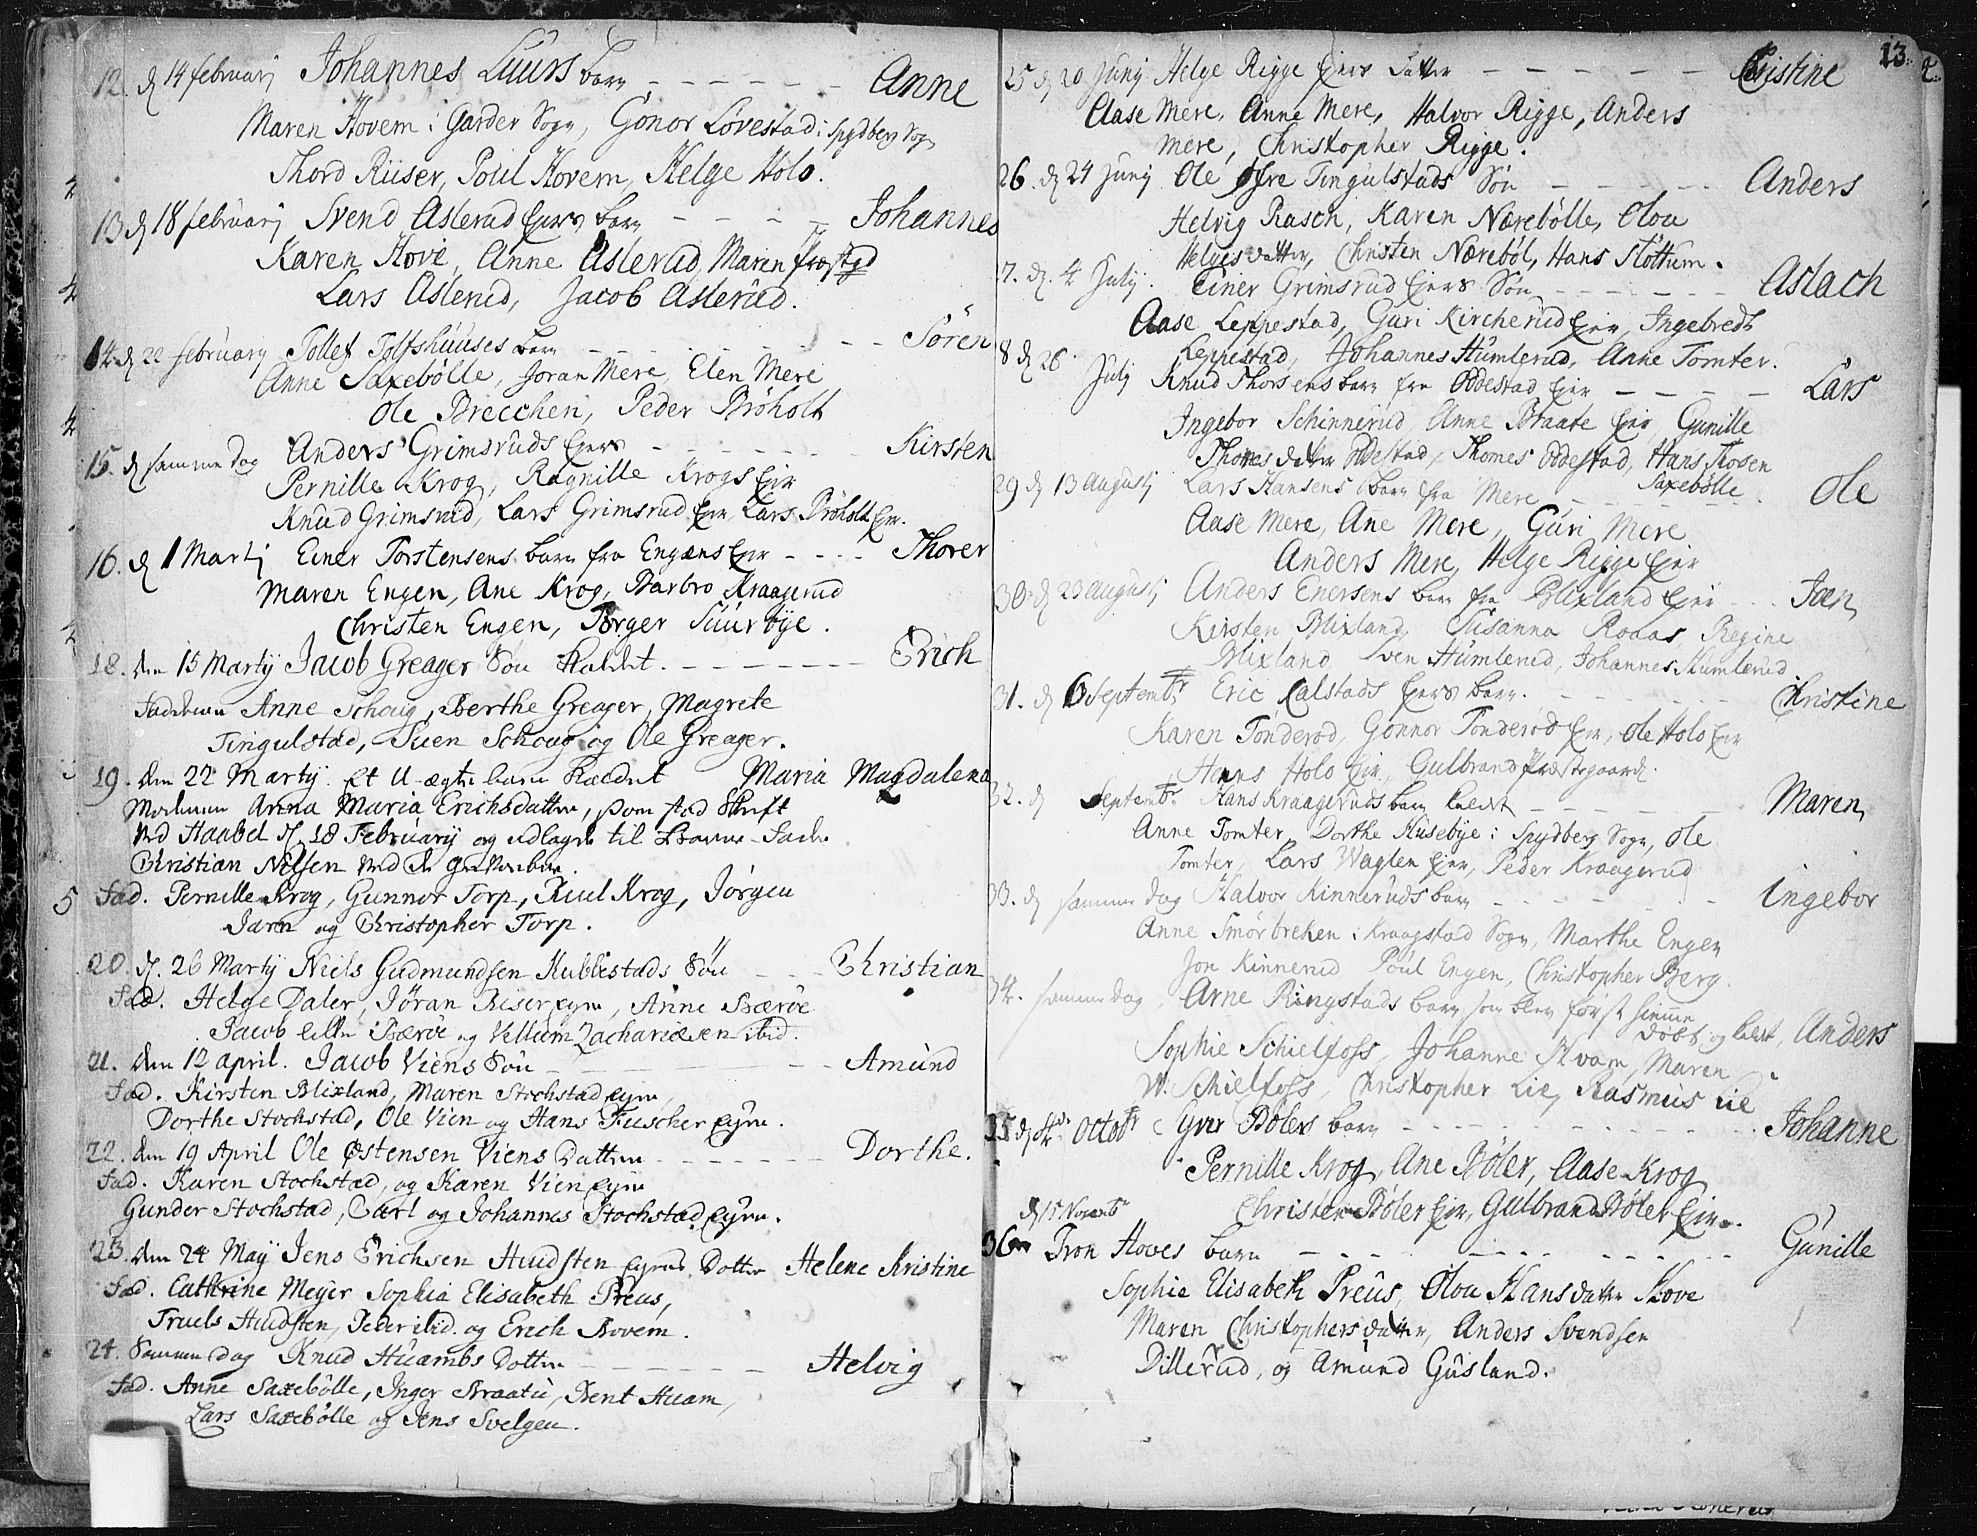 12. d 14 februarij Johannes Luurs barn - - - - - - Anne
Maren Hovem i Garder Sogn, Gonor Lövestad i Spydberg Sogn
Thord Riiser, Poul Hovem, Helge Holo.
13 d 18 februarij Svend Aslerud Eiers barn - - - - Johannes
Karen Hove, Anne Aslerud, Maren Præstgd
Lars Aslerud, Jacob Aslerud.
14 d 22 february Tollef Tolfshuuses barn - - - - - - - Sören
Anne Saxebölle, Joran Mere, Elen Mere
Ole Brecchen, Peder Bröholt
15. d samme dag Anders Grimsruds Eiers - - - - - - Kirsten
Pernille Krog, Ragnille Krogs Eier
Knud Grimsrud, Lars Grimsrud Eier, Lars Bröholt Eier.
16. d 1 Martij Einer Torstensens barn fra Engens Eier - - - - Thorer
Maren Engen, Ane Krog, Barbro Kraagerud
Christen Engen, Börger Suurbÿe.
18. den 15 Martij Jacob Greager Sön kaldet. - - - - - - - Erich
Fadderne Anne Schoug, Berthe Greager, Magrete
Tingulstad, Suen Schoug og Ole Greager.
19. den 22 Martij. et U-ægte barn kaldet Maria Magdalena
Moderen Anna Maria Erichsdatter, som stod Skrift
ved Haabel d. 18 Februarij og udlagde til Barne-Fader
Christian Nilsen
5 Fad. Pernille Krog, Gunnor Torp, Knud Krog, Jörgen
Jarn og Christopher Torp.
20. d. 26 Martij Niels Gudmundsen Kubbestads Sön - - - Christian
Fad. Helge Daler, Jöran Riser eyer, Anne Bæröe
Jacob lille Bæröe og Vellum Zachariæsen ibid.
21. den 12 april. Jacob Viens Sön - - - - - - - Amund
Fad. Kirsten Blixland, Maren Stochstad eyer,
Dorthe Stochstad, Ole Vien og Hans Fuscher eyer.
22. den 19 April Ole Østensen Viens datter - - - - - - Dorthe.
Fad. Karen Stochstad, og Karen Vien eyer
Gunder Stochstad, Carl og Johannes Stochstad eyer.
23. den 24 Maij Jens Erichsen Hudsten eyers Dotter Helene Kristine
Fad. Cathrine Meyer Sophia Elisabeth Preus,
Truels Hudsten, Peder ibid. og Erich Bovem.
24. Samme dag Knud Huambs Dotter - - - - - - Helvig
Fad. Anne Saxebölle, Inger Braatu, Bent Huam,
Lars Saxebölle og Jens Svelgen.
13.
25 d 20 Junij Helge Rigge Eiers datter - - - - - - Christine
Aase Mere, Anne Mere, Halvor Rigge, Anders
Mere, Christopher Rigge.
26. d 24 Junij Ole Øfre Tingulstads Sön - - - - - Anders
Helvig Rasch, Karen Nærebölle, Olou
Helgesdatter, Christen Næreböl, Hans Slöttum.
7. d. 4 Julij. Einer Grimsrud Eiers Sön - - - - - - Aslach
Aase Leppestad, Guri Kircherud Eier, Ingebredt
8 d 28 Leppestad, Johannes Humlerud, Anne Tomter.
Julij Knud Thorsens barn fra Oddestad Eier - - - - Lars
Ingebor Schinnerud, Anne Braate Eier, Gunille
Thomesdatter Oddestad, Thomes Oddestad, Hans Thosen
Saxebölle
29 d 13 augustj Lars Hansens barn fra Mere - - - - - Ole
Aase Mere, Ane Mere, Guri Mere
Anders Mere, Helge Rigge Eier
30 d 23 augustj Anders Enersens barn fra Blixland Eier - - - Joen
Kirsten Blixland, Susanna Roaas, Regine
Blixland, Sven Humlerud, Johannes Humlerud
31. d 6 Septembr Eric Calstads Eiers barn. - - - - - Christine
Karen Tonderod, Gonnor Tonderod Eier, Ole Holo Eier
Hans Holo Eier, Gulbrand Præstegaard.
32. d Septembr Hans Kraageruds barn kaldet - - - - - Maren
Anne Tomter, Dorthe Husebÿe i Spydberg Sogn, Ole
Tomter, Lars Waglen Eier, Peder Kraagerud
33. d samme dag Halvor Kinneruds barn - - - - - - - Ingebor
Anne Smörbreken i Kraagstad Sogn, Marthe Engen
Jon Kinnerud Poul Engen, Christopher Berg.
34. samme dag Arne Ringstads barn som blev först hiemme
Döbt, og kaldt, Anders
Sophie Schielfoss, Johanne Huam, Maren
W. Schielfoss, Christopher Lie, Rasmus Lie
35 d 4de Octobr Syver Bölers barn - - - - - - - Johanne
Pernille Krog, Ane Böler, Aase Krog
d 15 Novembr Christen Böler Eier, Gulbrand Böler Eier.
36 Tron Hoves barn - - - - - - - - Gunille
Sophie Elisabeth Preus, Olou Hansdatter Hove
Maren Christophersdatter, Anders Svendsen
Dillerud, og Amund Gusland.